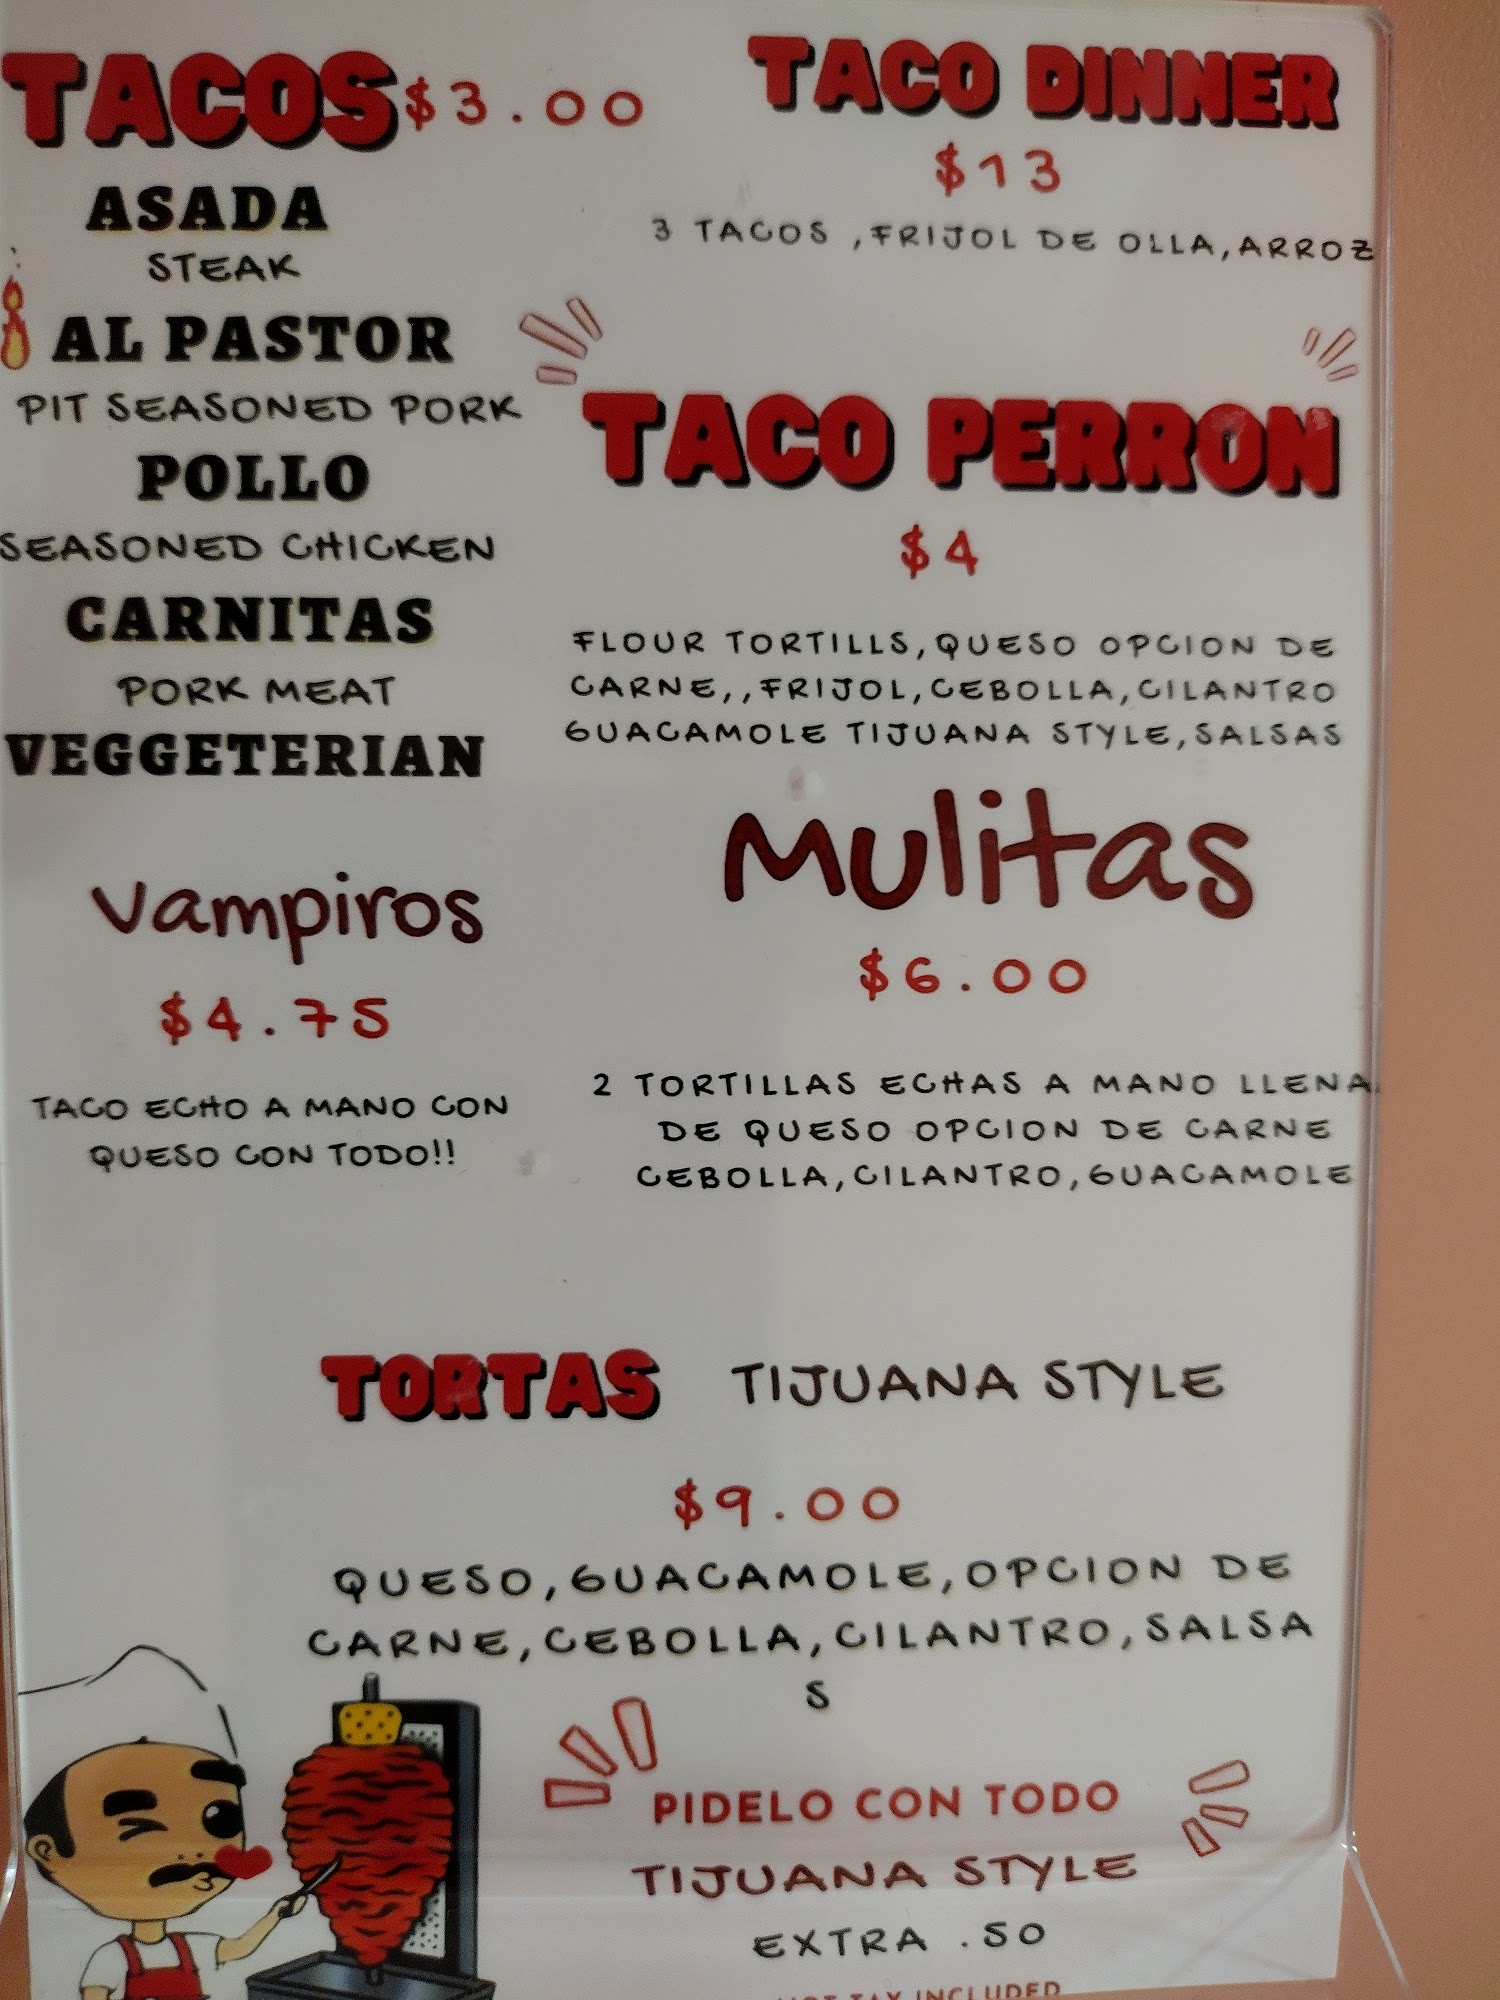 TACOS $3.00
ASADA
STEAK
AL PASTOR
PIT SEASONED PORK
POLLO
SEASONED CHICKEN
CARNITAS
PORK MEAT
VEGGETERIAN
Vampiros
$4.75
TACO ECHO A MANO CON
QUESO CON TODO!!
TACO DINNER
$13
3 TACOS ,FRIJOL DE OLLA,ARROZ
TACO PERRON
$4
FLOUR TORTILLS,QUESO OPCION DE
CARNE,,FRIJOL,CEBOLLA,CILANTRO
GUACAMOLE TIJUANA STYLE,SALSAS
Mulitas
$6.00
2 TORTILLAS ECHAS A MANO LLENA
DE QUESO OPCION DE CARNE
CEBOLLA,CILANTRO,GUACAMOLE
TORTAS TIJUANA STYLE
$9.00
QUESO,GUACAMOLE,OPCION DE
CARNE,CEBOLLA,CILANTRO,SALSA
S
PIDELO CON TODO
TIJUANA STYLE
EXTRA .50
NOT TAX INCLUDED